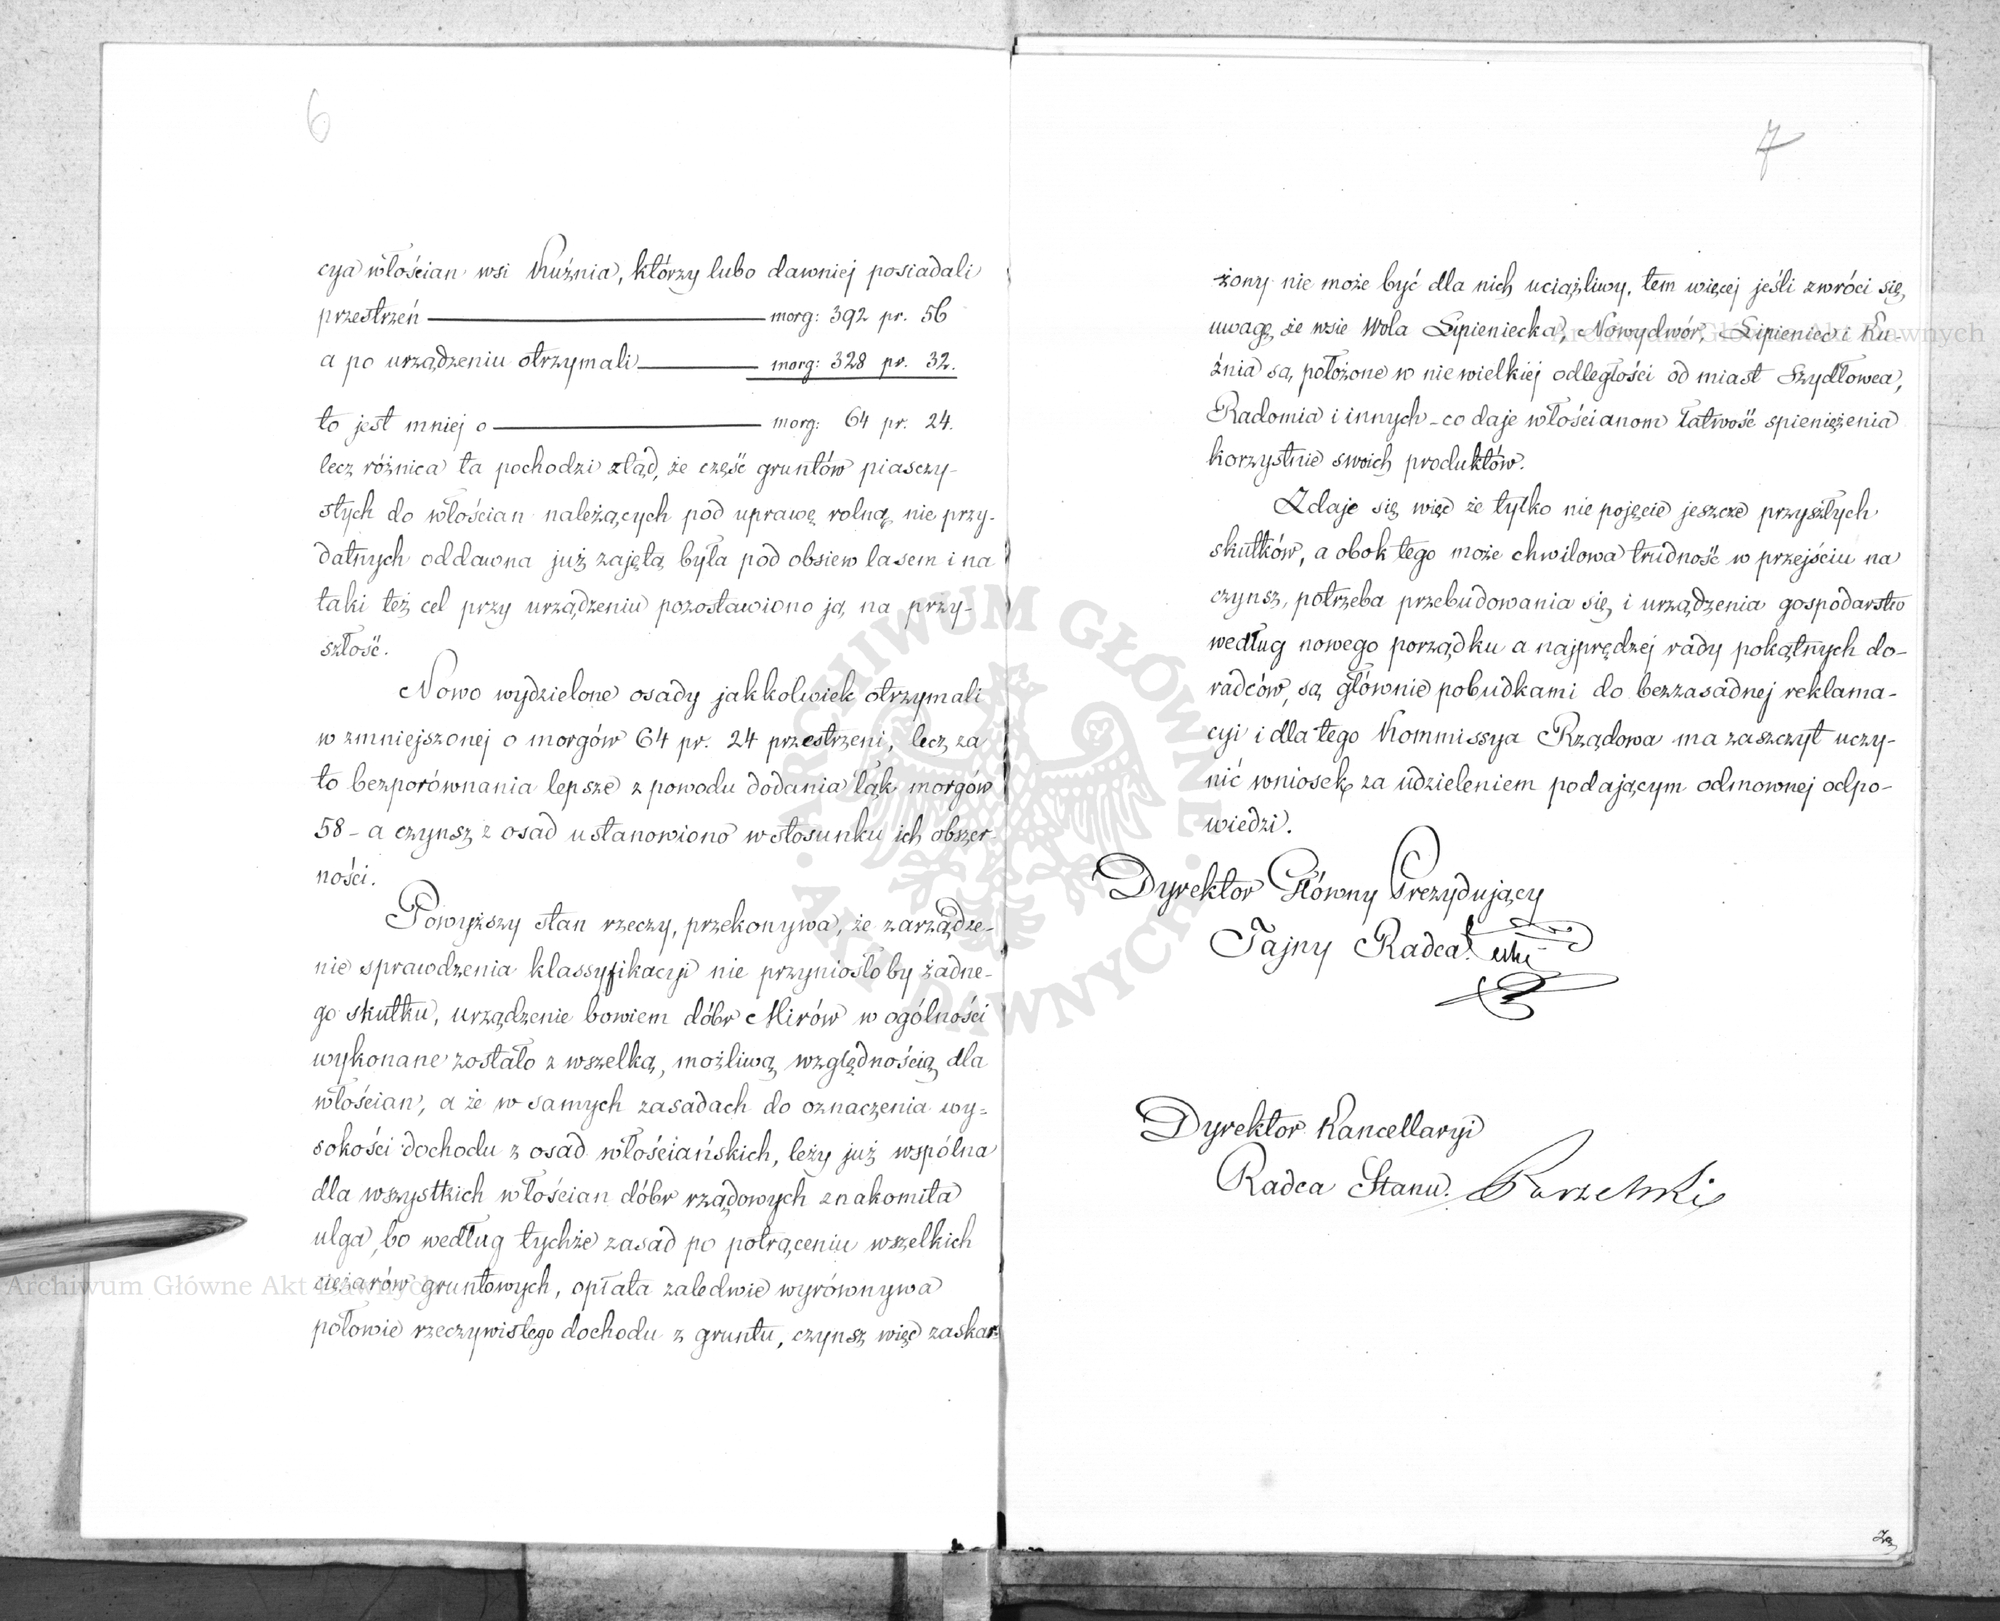 6
cya włościan wsi Kuźnia, którzy lubo dawniej posiadali
przestrzeń morg: 392 pr. 56
a po urządzeniu otrzymali morg: 328 pr. 32.
to jest mniej o morg: 64 pr. 24.
lecz różnica ta pochodzi ztąd, że część gruntów piasczy-
stych do włościan należących pod uprawę rolną nie przy-
datnych oddawna już zajętą była pod obsiew lasem i na
taki też cel przy urządzeniu pozostawiono ją na przy-
szłość.
Nowo wydzielone osady jakkolwiek otrzymali
w zmniejszonej o morgów 64 pr. 24 przestrzeni, lecz za
to bezporównania lepsze z powodu dodania łąk morgów
58 - a czynsz z osad ustanowiono w stosunku ich obszer-
ności.
Powyższy stan rzeczy, przekonywa, że zarządze-
nie sprawdzenia klassyfikacyi nie przyniosłoby żadne-
go skutku, urządzenie bowiem dóbr Mirów w ogólności
wykonane zostało z wszelką, możliwą względnością dla
włościan, a że w samych zasadach do oznaczenia wy-
sokości dochodu z osad włościańskich, leży już wspólna
dla wszystkich włościan dóbr rządowych znakomita
ulga, bo według tychże zasad po potrąceniu wszelkich
ciężarów gruntowych, opłata zaledwie wyrównywa
połowie rzeczywistego dochodu z gruntu, czynsz więc zaskar-
7
żony nie może być dla nich uciążliwy, tem więcej jeśli zwróci się
uwagę, że wsie Wola Lipieniecka, Nowydwór, Lipieniec i Ku-
źnia są, położone w niewielkiej odległości od miast Szydłowca,
Radomia i innych - co daje włościanom łatwość spieniężenia
korzystnie swoich produktów.
Zdaje się więc że tylko nie pojęcie jeszcze przyszłych
skutków, a obok tego może chwilowa trudność w przejściu na
czynsz, potrzeba przebudowania się i urządzenia gospodarstw
według nowego porządku a najprędzej rady pokątnych do-
radców, są głównie pobudkami do bezzasadnej reklama-
cyi i dla tego Kommissya Rządowa ma zaszczyt uczy-
nić wniosek za udzieleniem podającym odmownej odpo-
wiedzi.
Dyrektor Główny Prezydujący
Tajny Radca
Dyrektor Kancellaryi
Radca Stanu.
Archiwum Główne Akt Dawnych
Archiwum Główne Akt Dawnych
ARCHIWUM GŁÓWNE AKT DAWNYCH